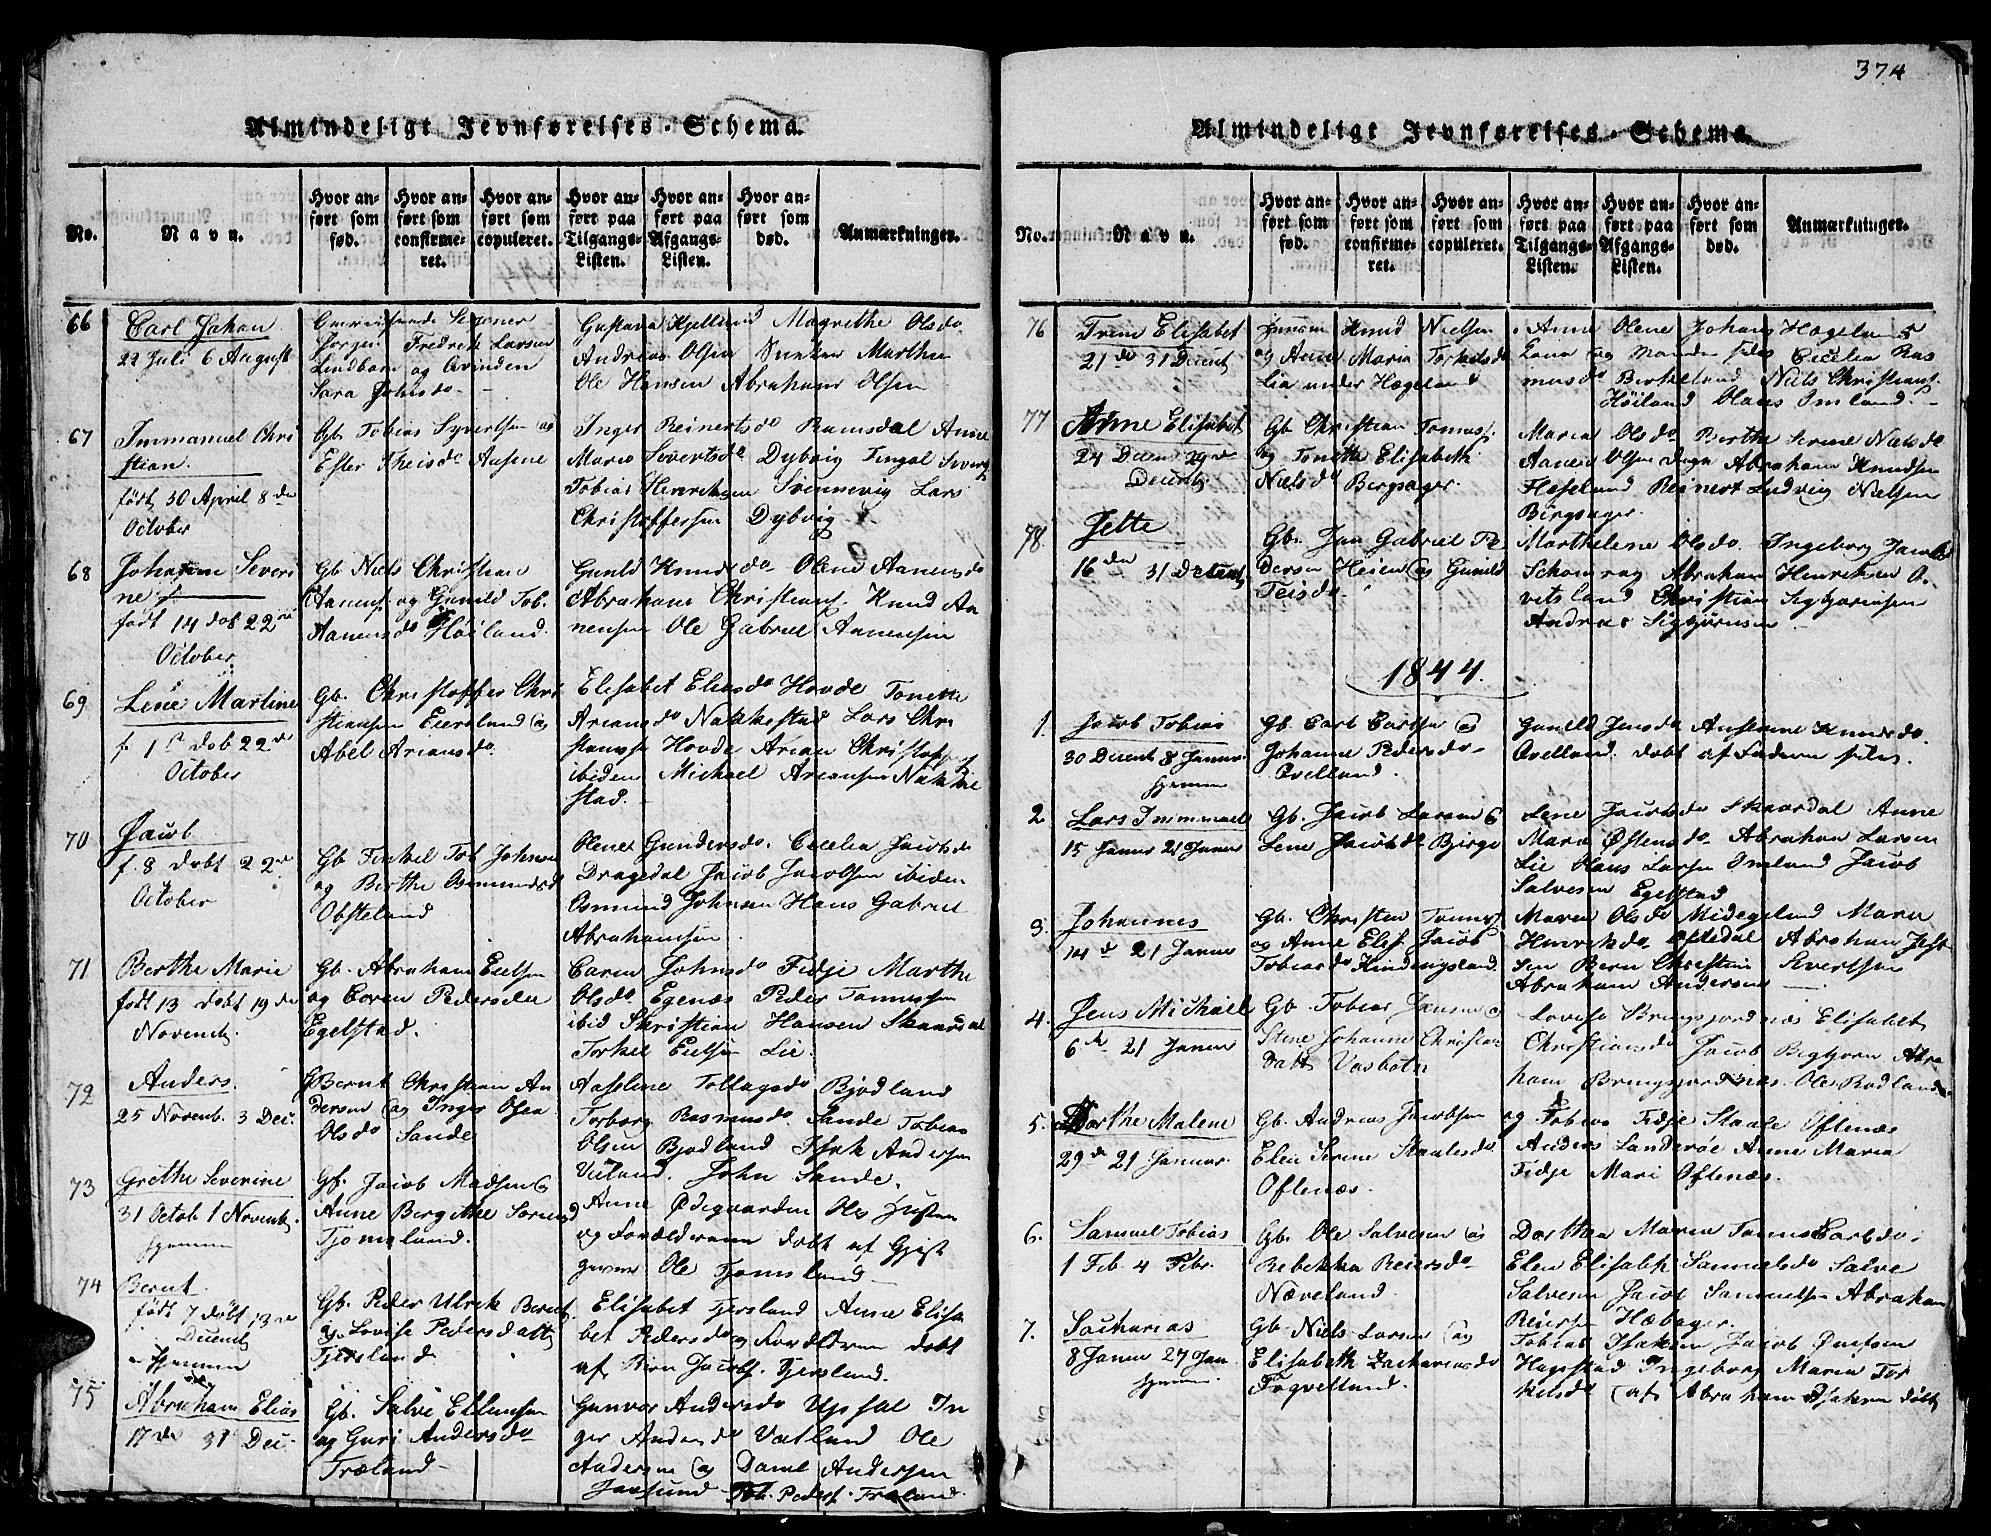 374
Almindeligt Jevnførelses-Schema.
No.
Navn.
Hvor anført som fød.
Hvor anført som confirmeret.
Hvor anført som copuleret.
Hvor anført paa Tilgangs-Listen.
Hvor anført paa Afgangs-Listen.
Hvor anført som død.
Anmærkninger.
66
Carl Johan
22 Juli 6 August
Jørgen Fredrik Larsen
Lindbom og Qvinden
Sara Johnsdr
Gustava Kjellund Magrethe Olsdr
Andreas Olsen Marthin
Ole Hansen Abraham Olsen
67
Immanuel Chri
stian.
født 30 April 8de
October
Gb. Tobias Syvertsen og
Ester Theisdr Aasene
Inger Reinertsdr Ramsdal Anne
Marie Sivertsdr Dybvig Fingal Sivertz
Tobias Henriksen Svennevig Lars
Christoffersen Dybvig
68
Johanne Severi
ne
født 14 dob 22de
October
Gb Niels Christian
Aanens. og Gunild Tob.
Aanensdr Høiland.
Gunild Knudsdr Olene Aanensdr
Abraham Christians. Knud Aa
nensen Ole Gabriel Aanensen
69
Lene Martine
f. 1 dob 22de
October
Gb. Christoffer Chri
stiansen Eiersland og
Abel Ariansdr
Elisabet Eliasdr Hovde Tonette
Ariansdr Nakkestad Lars Chri
stians. Hovde Arian Christoff
ibiden Michael Ariansen Nakke
stad.
70
Jacob
f. 8 dobt 22de
October
Gb Tinkel Tob Johnsen
og Berthe Osmundsdr
Obsteland
Olene Gundersdr. Cecelia Jacobsdr
Dragedal Jacob Jacobsen ibiden
Osmund Johnsen Hans Gabriel
Abrahamsen
71
Berthe Marie
født 13 dobt 19de
Novemb.
Gb. Abraham Eielsen
og Coren Pedersdtr
Egelstad.
Caren Johnsdr Fidje Marthe
Olsdr Egenæs Peder Tonnessen
ibid Christian Hansen Skaardal
Torkel Eielsen Lie.
72
Anders.
25 Novemb. 3 Dec.
Bernt Christian An
dersen og Inger Osea
Olsdr Sande
Aaslene Tollagsdr Bjodland
Torborg Rasmusdr. Sande Tobias
Olsen Bjodland Isak Andersen
Vieland. John Sande.
73
Grethe Severine
31 Octob 1 Novemb.
hjemme
Gf. Jacob Madsen og
Anne Bergithe Sorens
Tjomsland.
Anne Ødegaarden Ole Justsen
og Forældrene dobt af Gjest
giver Ole Tjomsland
74
Bernt.
født 7 døbt 13de
Decemb
hjemme
Gb. Peder Ulrik Bernt
og Lovise Pedersdatt
Fjersland
Elisabet Fjersland Anne Elisa
bet Pedersdr og Forældrene dobt
af Bern Jacobs. Fjersland.
75
Abraham Elias
17de 31 Dec.
Gb. Salve Ellingsen
og Guri Andersdr
Træland
Gunvor Andersdr Upsal In
ger Andersdr Vatland Ole
Andersen og Daniel Andersen
Josund Tob. Peders. Træland.
Almindeligt Jevnførelses-Schema.
No.
Navn.
Hvor anført som fød.
Hvor anført som confirmeret.
Hvor anført som copuleret.
Hvor anført paa Tilgangs-Listen.
Hvor anført paa Afgangs-Listen.
Hvor anført som død.
Anmærkninger.
76
Trine Elisabet
21de 31 Decemb
Knud Nielsen
og Anne Maria Torkelsdr
Lia under Hægeland
Anne Olene Johans Hægeland
Cecelia Ras
musdr Birkeland Niels Christians.
Høiland Olaus Omland.
77
Anne Elisabet
24 Decem 29de
Decemb.
Gb Christian Tomas.
og Tonette Elisabeth
Nielsdr Bergsager.
Maren Olsdr Berthe Serine Nielsdr
Aanen Olsen Abraham Knudsen
Fleseland Reinert Ludvig Nielsen
Birgsager.
78.
Jette
16den 31 Decemb
Gb. Jan Gabriel Pe
dersen Heien og Gunild
Teisdr.
Marthelene Olsdr. Ingeborg Jacobsd
Abraham Henriksen O
vitsland Christian Sigbjørnsen
Andreas Sigbjørnsen
1844.
1.
Jacob Tobias
30 Decemb 8 Januar
hjemme
Gb. Carl Carlsen og
Johanne Pedersdr
Qvelland.
Gunild Jensdr Anstine Knudsdr.
Qvelland. dobt af Faderen selv.
2.
Lars Immanuel
15 Januar 21 Januar
Gb. Jacob Larsen &
Lene Jacobsdr Birge
Lene Jacobsdr Skaardal Anne
Maria Øftensdr Abraham Larsen
Lie Olaus Larsen Omland Jacob
Salvesen Egelstad
3.
Johannes
14de 21 Januar
Gb. Christen Tonnes.
og Anne Elis. Jacob
Tobiasdr Kindingsland.
Maren Olsdr Midegelund Maren
Henriksdr Ofledal Abraham
sen Bern Christian Sivertsen
Abraham Andersen
4.
Jens Michael
6de 21 Januar
Gb. Tobias Jensen og
Stine Johanne Christen
datt Vasbotn
Lovise Bringsjordnæs Elisabet
Christiansdr Jacob Bigbjorn Abra
ham Bringsjordnæs. Ole Rodland
5.
Dorthe Malene
29de 21 Januar.
Gb. Andreas Jacobsen
Elen Serine Staalesdr
Oftenæs.
og Tobias Fidje Staale Oftenæs
Anders Landerøe Anne Maria
Fidje Mari Oftenæs.
6.
Samuel Tobias
1 Feb 4 Febr.
Gb. Ole Salvesen og
Rebekka Reiersdr
Næveland.
Dorthea Maria Tonnes
Elen Elisabeth Samuelsdr Salve
Salvesen Jacob Samuelsen Abraham
Reiersen Hæbager.
7.
Sacharias
8 Janua 27 Jan.
hjemme.
Gb. Niels Larsen og
Elisabeth Zachariasdr
Fogvelland.
Tobias Isaksen Jacob
Hagestad Ingeborg Maria Tor
kelsdr (af Abraham Isaksen døbt